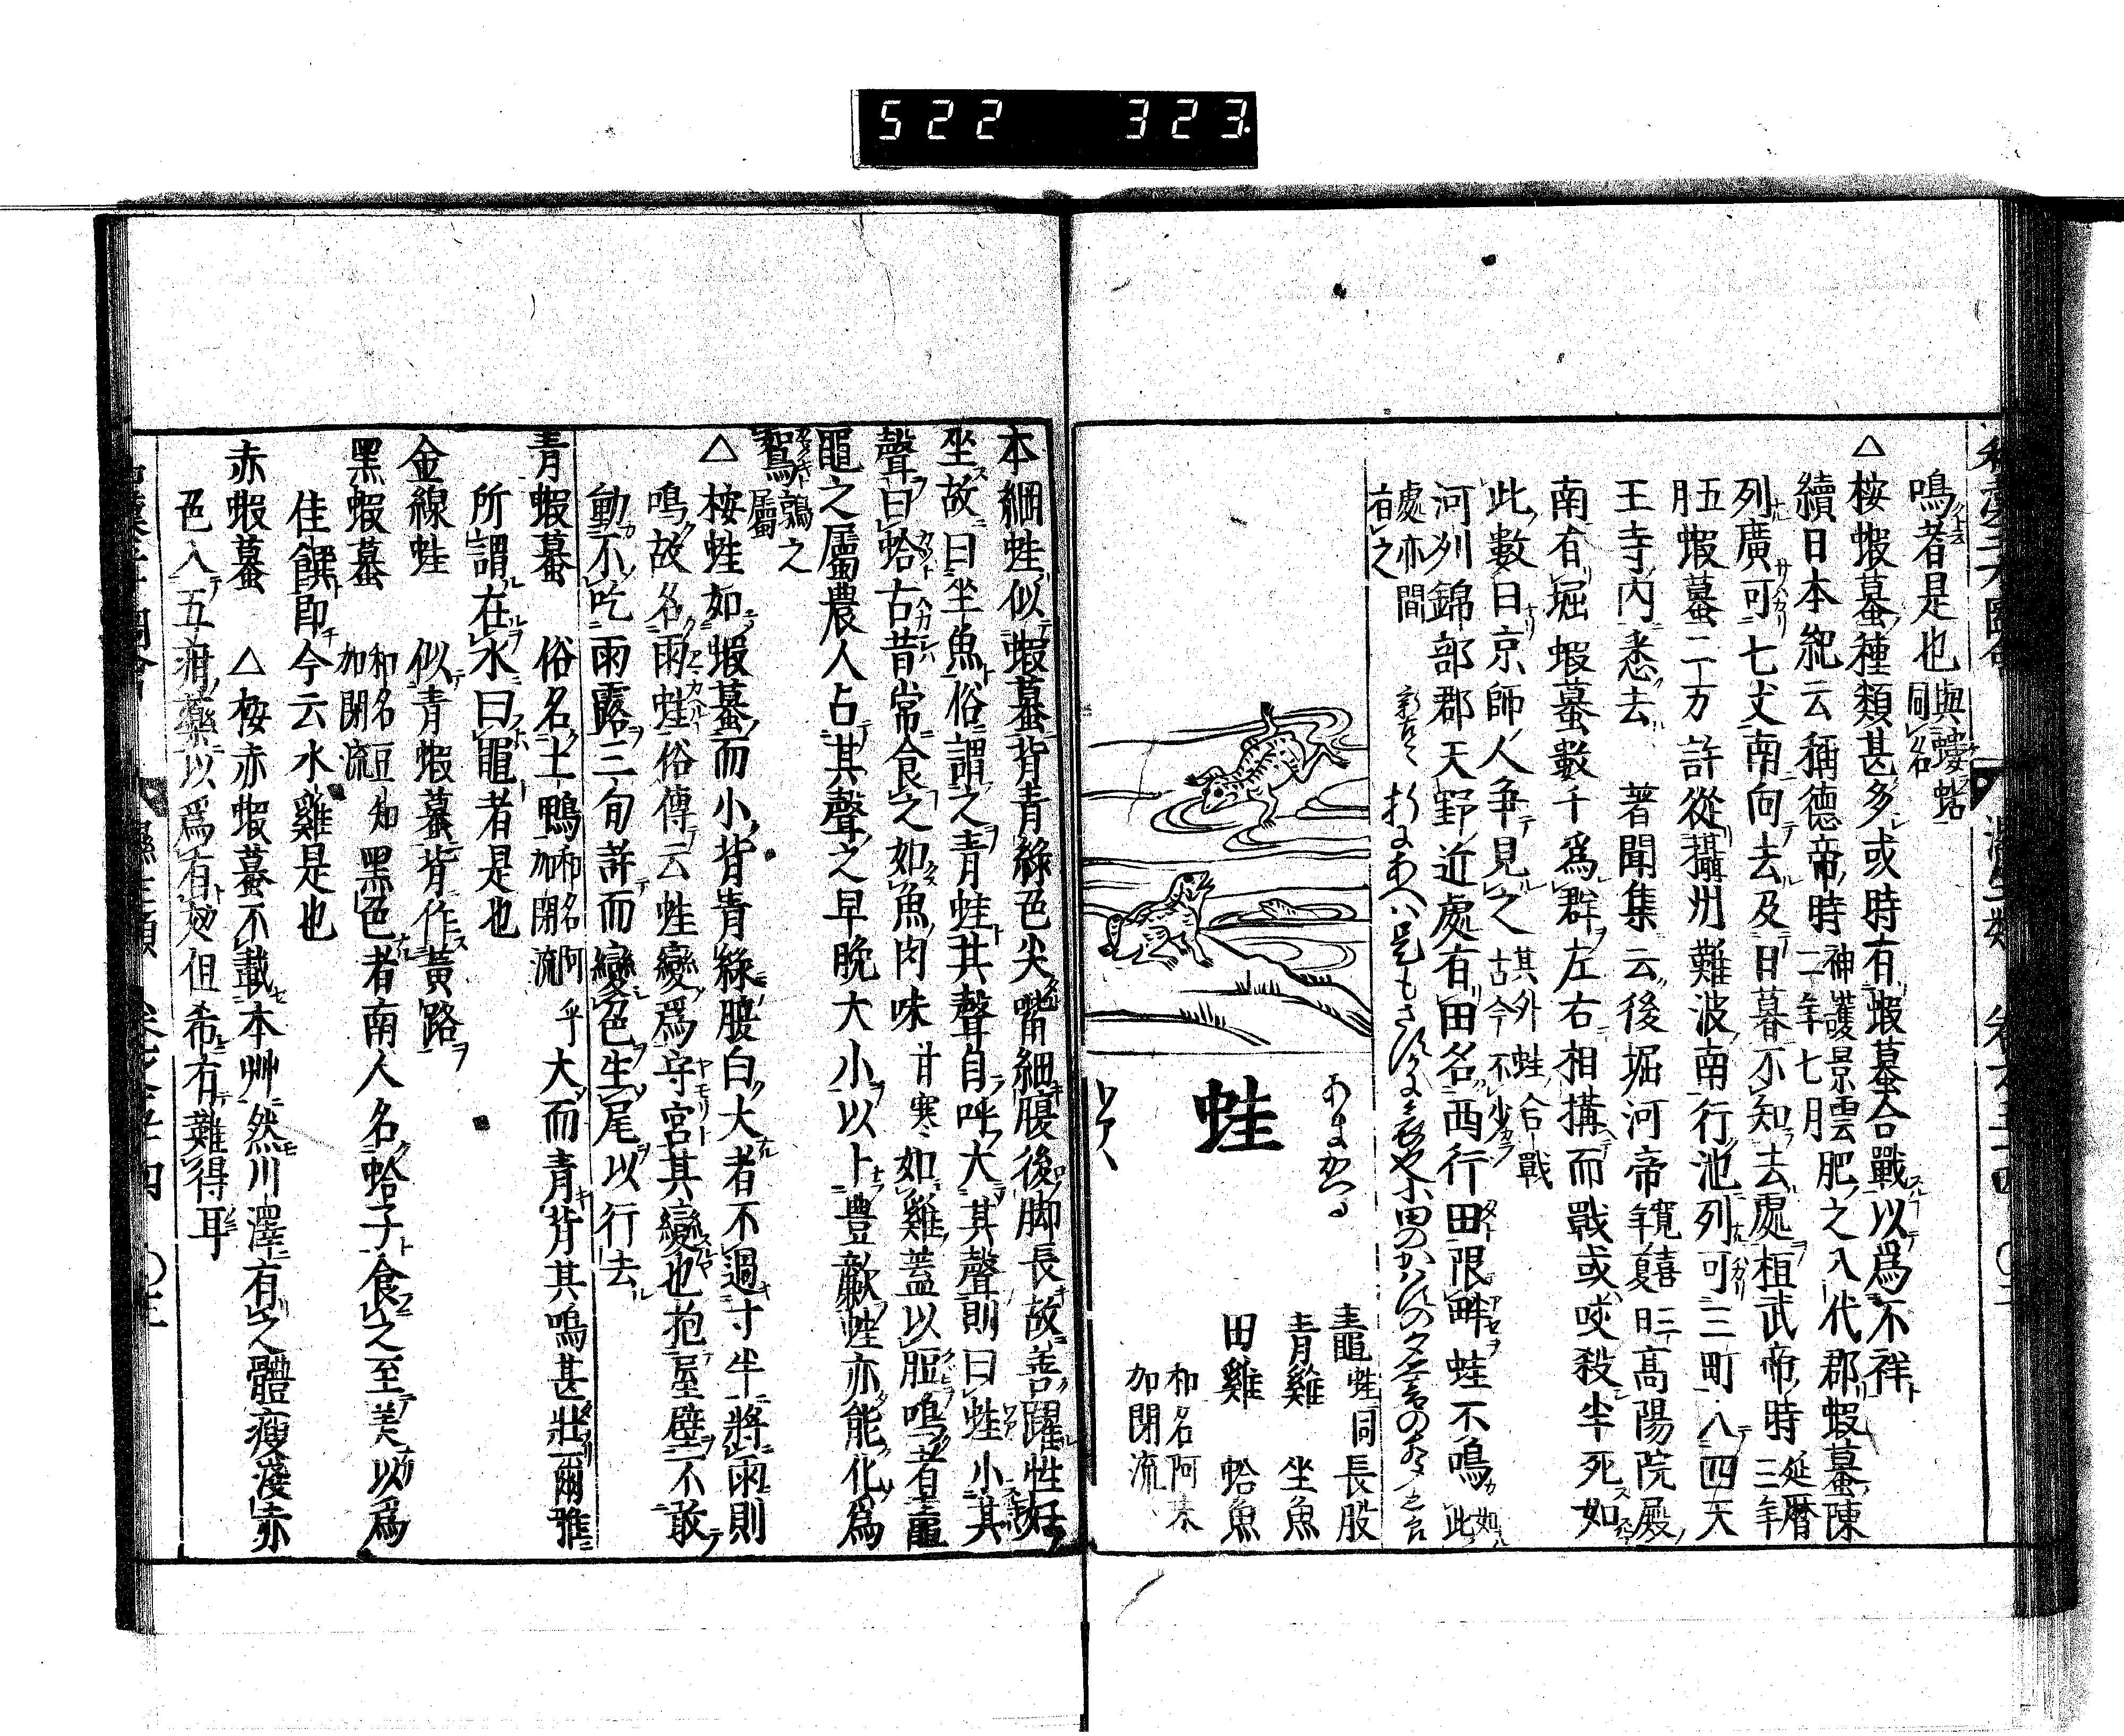 522 323.
鳴者是也與螻蛄同名
△按蝦蟇種類甚多或時有蝦蟇合戰以爲不祥
續日本紀云稱德帝時神護景雲二年七月肥之八代郡蝦蟇陳
列廣可七丈南向去及日暮不知去處桓武帝時延曆三年
五月蝦蟇二万許從攝州難波南行池列可三町入四天
王寺内悉去 著聞集云後堀河帝寛喜三年夏日高陽院殿
南有堀蝦蟇數千爲群左右相搆而戰或咬殺半死如
此數日京師人争見之其外蛙合戰古今不少
河列錦部郡天野近處有田名西行田限畔蛙不鳴如此
處亦間有之
蛙
あまかへる
鼃蛙同 長股
青雞 坐魚
田雞 蛤魚
和名阿末加閉流
本綱蛙似蝦蟇背青綠色尖嘴細腹後脚長故善躍性好
坐故曰坐魚俗謂之青蛙其聲自呼大其聲則曰蛙小其
聲曰蛤古昔常食之如魚肉味甘寒如雞蓋以脰鳴者鼃
黽之屬農人占其聲之早晩大小以卜豊歉蛙亦能化爲
鴽鶉之屬
△按蛙如蝦蟇而小背青綠腹白大者不過寸半將雨則
鳴故名雨蛙俗傳云蛙變爲守宮其變也抱屋壁不敢
動不吃雨露三旬許而變色生尾以行去
青蝦蟇 俗名土鴨和名阿乎加閉流 大而青脊其鳴甚壯爾雅
所謂在水曰黽者是也
金線蛙 似青蝦蟇背作黃路
黑蝦蟇 和名豆知加閉流 黑色者南人名蛤子食之至美以爲
佳饌即今云水雞是也
赤蝦蟇 △按赤蝦蟇不載本艸然川澤有之體瘦淺赤
色入五疳藥以爲有效但希有難得耳